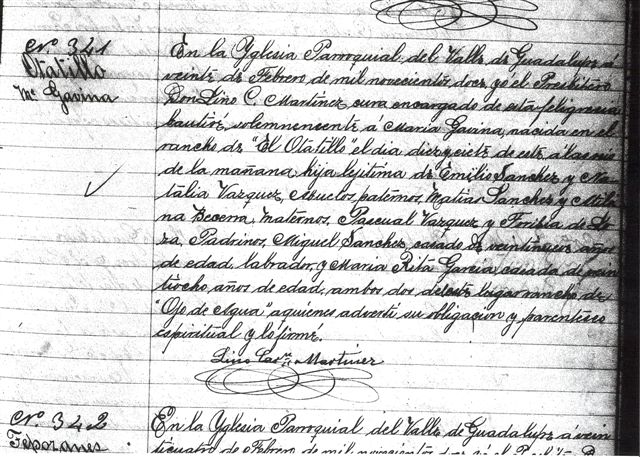 No. 341
Otatillo
Ma. Gavina
En la Yglesia Parroquial del Valle de Guadalupe á
veinte de Febrero de mil novecientos doce yó el Presbítero
Don Lino C. Martinez, cura encargado de esta feligrecia
bauticé solemnemente á Maria Gavina, nacida en el
rancho de "El Otatillo" el dia diez y siete de este á las seis
de la mañana, hija lejitima de Emilio Sanchez y Na-
talia Vazquez, Abuelos paternos, Matias Sanchez y
na Becerra, Maternos, Pascual Vazquez y de Lo-
za, Padrinos, Miguel Sanchez, casado de veintinueve años
de edad, labrador, y Maria Rita Garcia casada de vein-
tiocho, años de edad, ambos dos de este lugar rancho de
"Ojo de Agua" a quienes advertí su obligacion y parentesco
espiritual y lo firmé.
Lino Martinez
No. 342
Teporanes.
En la Yglesia Parroquial del Valle de Guadalupe á vein-
ticuatro de Febrero de mil novecientos doce yó el